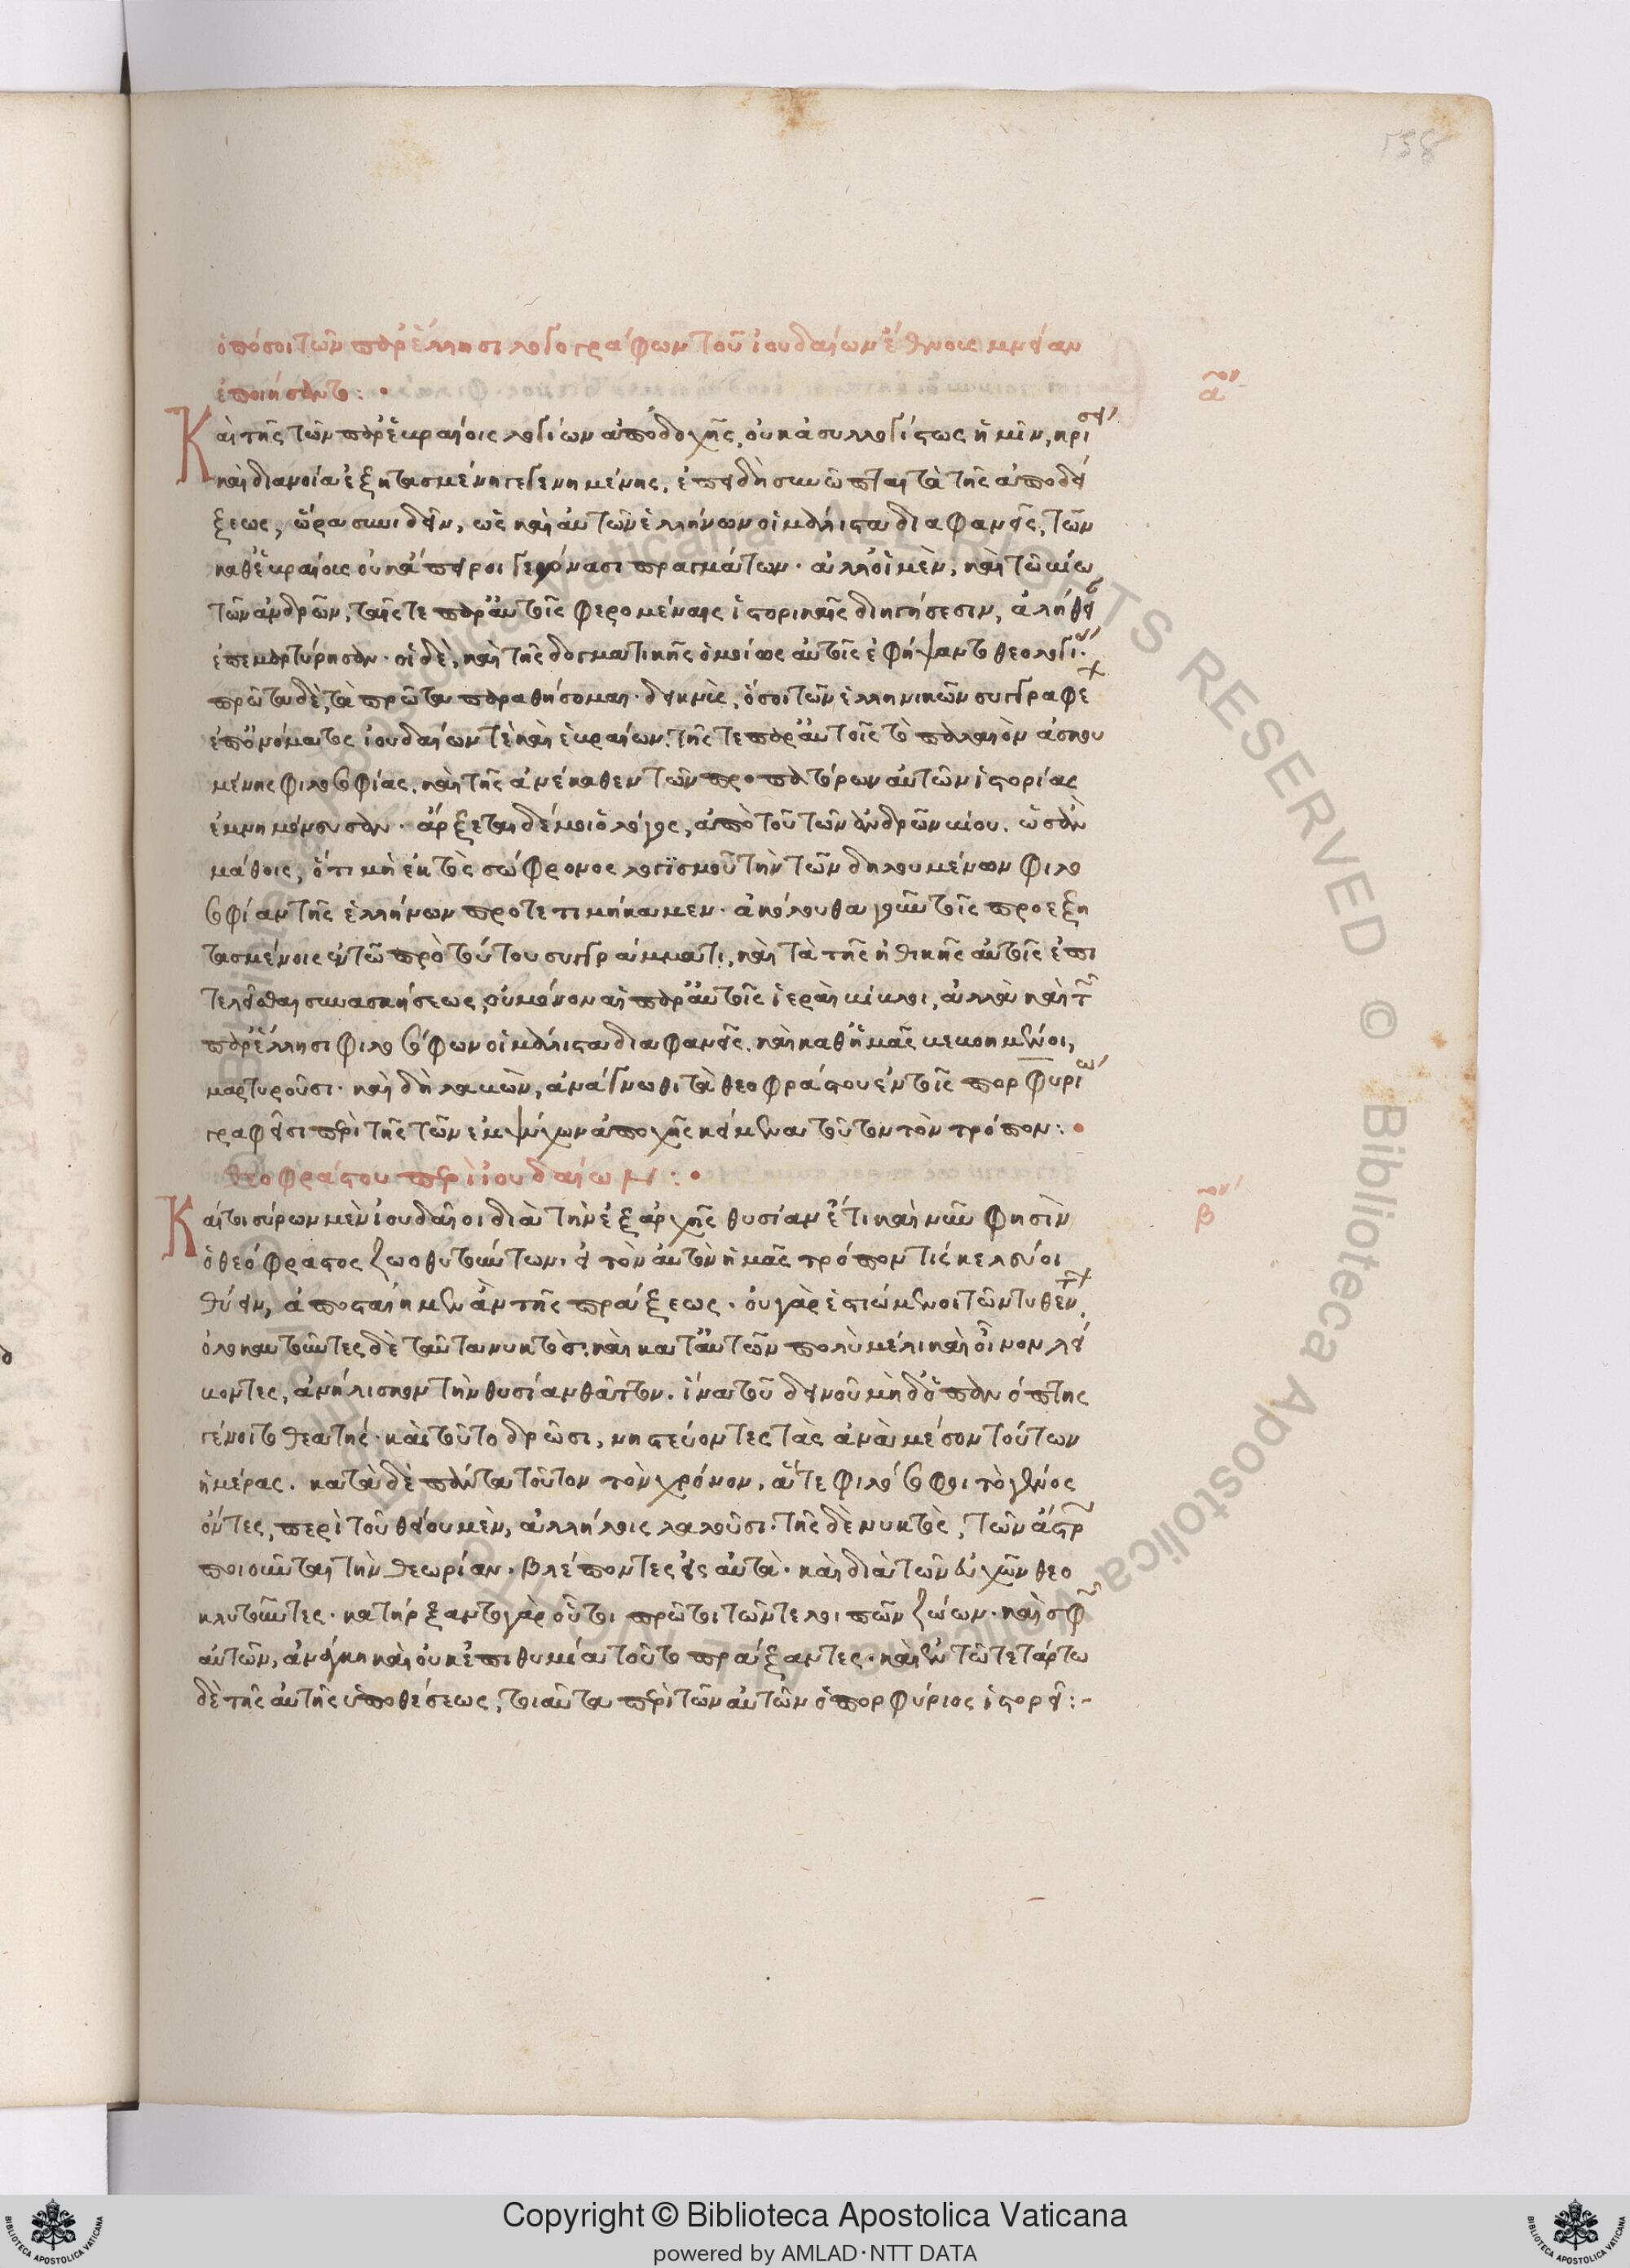 138
ὁπόσοι τῶν παρ' ἕλλησι λογογράφων τοῦ ἰουδαίων ἔθνους μνείαν
ἐποιήσαντο:·
α ον
Καὶ τῆς τῶν παρ' ἑβραίοις λογίων ἀποδοχῆς, οὐκ ἀσυλλογίστως ἡμῖν, κρίσει
καὶ διανοία ἐξητασμένη γεγενημένης, ἐπειδὴ συνῶπται τὰ τῆς ἀποδεί
ξεως, ὥρα συνιδεῖν, ὡς καὶ αὐτῶν ἑλλήνων οἱ μάλιστα διαφανεῖς, τῶν
καθ' ἑβραίους οὐκ ἄπειροι γεγόνασι πραγμάτων· ἀλλ' οἱ μὲν, καὶ τῶ βίω
τῶν ἀνδρῶν, ταῖς τε παρ' αὐτοῖς φερομέναις ἱστορικαῖς διηγήσεσιν, ἀλήθειαν
ἐπεμαρτύρησαν· οἱ δὲ, καὶ τῆς δογματικῆς ὁμοίως αὐτοῖς ἐφήψαντο θεολογίας·
πρῶτα δὲ, τὰ πρῶτα παραθήσομαι· δεικνὺς, ὅσοι τῶν ἑλληνικῶν συγγραφέων
ἐπ' ὀνόματος ἰουδαίων τὲ καὶ ἑβραίων, τῆς τε παρ' αὐτοῖς τὸ παλαιὸν ἀσκου
μένης φιλοσοφίας, καὶ τῆς ἀνέκαθεν τῶν προπατόρων αὐτῶν ἱστορίας
ἐμνημόνευσαν· ἄρξεται δέ μοι ὁ λόγος, ἀπὸ τοῦ τῶν ἀνδρῶν βίου. ὡς ἂν
μάθοις, ὅτι μὴ ἐκτὸς σώφρονος λογϊσμοῦ τὴν τῶν δηλουμένων φιλο
σοφίαν τῆς ἑλλήνων προτετιμήκαμεν· ἀκόλουθα γοῦν τοῖς προεξη
τασμένοις ἐν τῶ πρὸ τούτου συγγράμματι, καὶ τὰ τῆς ἠθικῆς αὐτοῖς ἐπι
τελεῖσθαι συνασκήσεως, οὐ μόνον αἱ παρ' αὐτοῖς ἱεραὶ βίβλοι, ἀλλὰ καὶ τῶν
παρ' ἕλλησι φιλοσόφων οἱ μάλιστα διαφανεῖς. καὶ καθ' ἡμᾶς βεβοημένοι,
μαρτυροῦσι· καὶ δὴ λαβὼν, ἀνάγνωθι τὰ θεοφράστου ἐν τοῖς πορφυρίω
γραφεῖσι περὶ τῆς τῶν ἐμψύχων ἀποχῆς κείμενα τοῦτον τὸν τρόπον:·
θεοφράστου περὶ ἰουδαίων:·
β ον
Καίτοι σύρων μὲν ἰουδαῖοι διὰ τὴν ἐξ ἀρχῆς θυσίαν ἔτι καὶ νῦν φησὶν
ὁ θεόφραστος ζωοθυτούντων, εἰ τὸν αὐτὸν ἡμᾶς τρόπον τὶς κελεύοι
θύειν, ἀποσταίημεν ἂν τῆς πράξεως· οὐ γὰρ ἑστιώμενοι τῶν τυθέντων,
ὁλοκαυτοῦντες δὲ ταῦτα νυκτὸς, καὶ κατ' αὐτῶν πολὺ μέλι καὶ οἶνον λεί
βοντες, ἀνήλισκον τὴν θυσίαν θᾶττον. ἵνα τοῦ δεινοῦ μὴ δ' ὁ πᾶν ὁπτης
γένοιτο θεατής· καὶ τοῦτο δρῶσι, νηστεύοντες τὰς ἀνὰ μέσον τούτων
ἡμέρας. κατὰ δὲ πάντα τοῦτον τὸν χρόνον, ἅτε φιλόσοφοι τὸ γένος
ὄντες, περὶ τοῦ θείου μὲν, ἀλλήλοις λαλοῦσι· τῆς δὲ νυκτὸς, τῶν ἄστρων
ποιοῦνται τὴν θεωρίαν· βλέποντες εἰς αὐτὰ· καὶ διὰ τῶν εὐχῶν θεο
κλυτοῦντες· κατήρξαντο γὰρ οὗτοι πρῶτοι τῶν τε λοιπῶν ζώων· καὶ σφῶν
αὐτῶν, ἀνάγκη καὶ οὐκ ἐπιθυμία τοῦτο πράξαντες· καὶ ἐν τῶ τετάρτω
δὲ τῆς αὐτῆς ὑποθέσεως, τοιαῦτα περὶ τῶν αὐτῶν ὁ πορφύριος ἱστορεῖ:-
Biblioteca Apostolica Vaticana ALL RIGHTS RESERVED ©
Copyright © Biblioteca Apostolica Vaticana
powered by AMLAD·NTT DATA
BIBLIOTECA APOSTOLICA VATICANA
BIBLIOTECA APOSTOLICA VATICANA